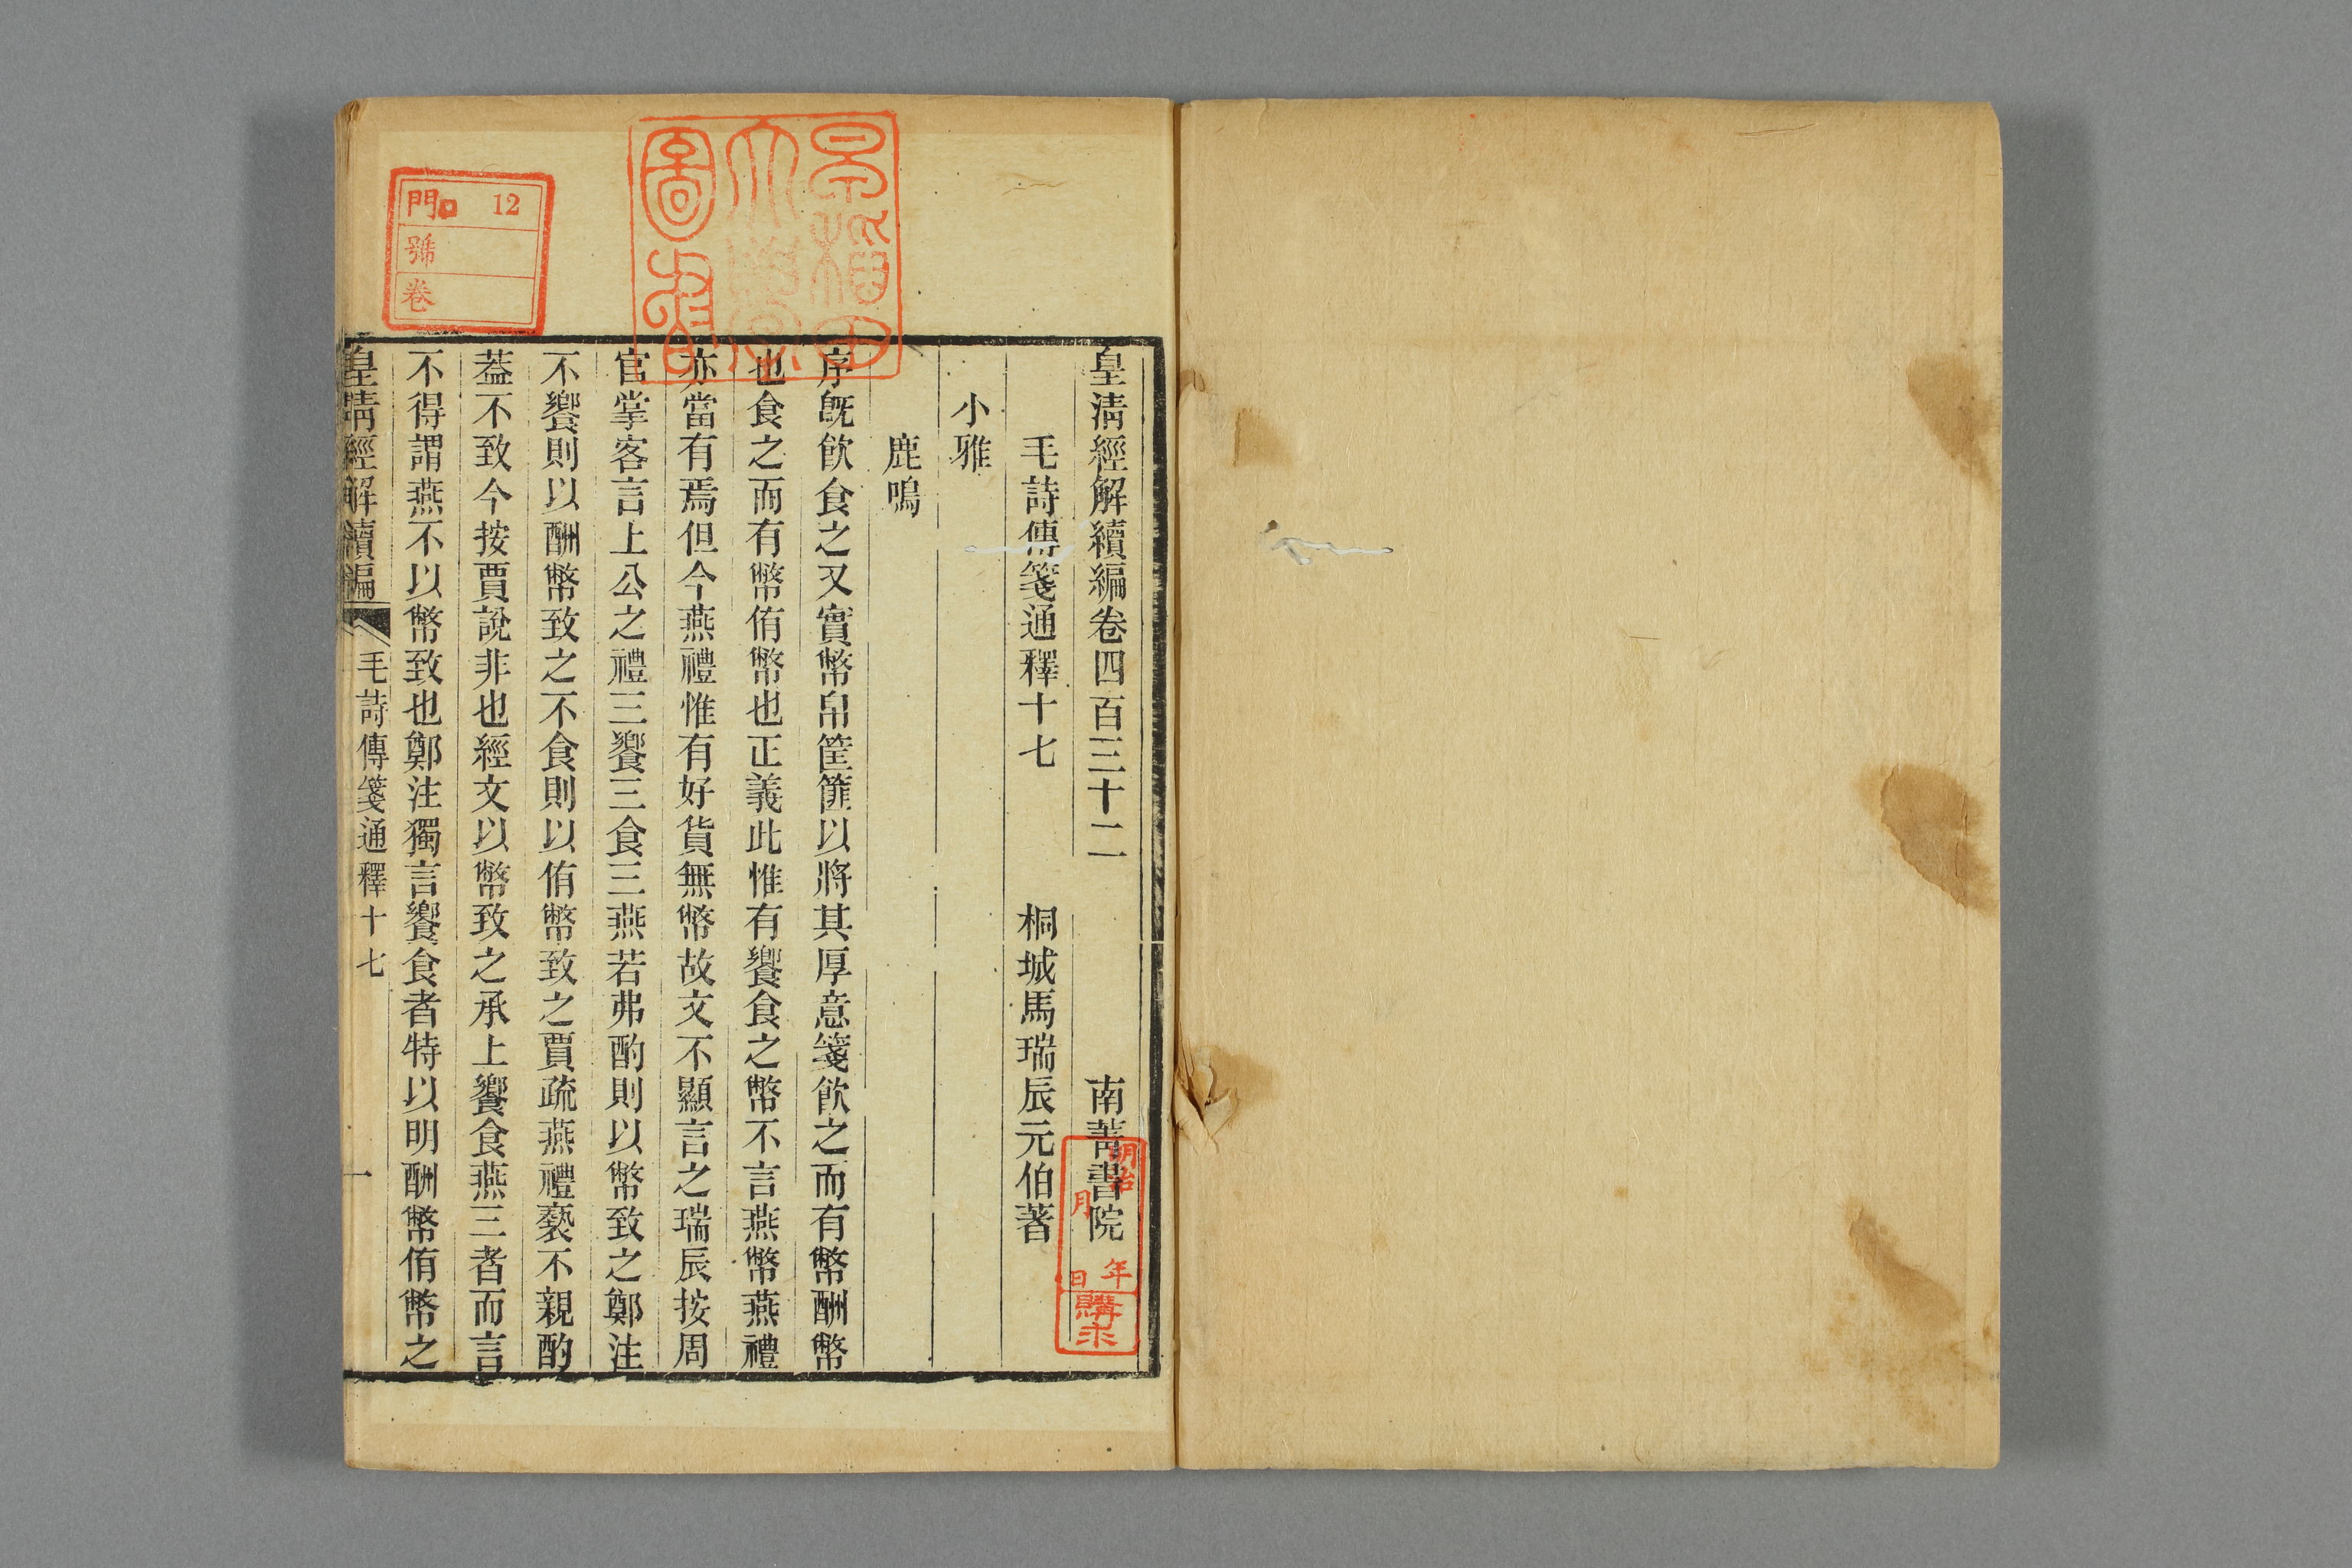 皇清經解續編卷四百三十二 南菁書院
毛詩傳箋通釋十七 桐城馬瑞辰元伯著
小雅
鹿鳴
序旣飮食之又實幣帛筐篚以將其厚意箋飮之而有幣酬幣
也食之而有幣侑幣也正義此惟有饗食之幣不言燕幣燕禮
亦當有焉但今燕禮惟有好貨無幣故文不顯言之瑞辰按周
官掌客言上公之禮三饗三食三燕若弗酌則以幣致之鄭注
不饗則以酬幣致之不食則以侑幣致之賈疏燕禮褻不親酌
葢不致今按賈說非也經文以幣致之承上饗食燕三者而言
不得謂燕不以幣致也鄭注獨言饗食者特以明酬幣侑幣之
皇清經解續編 毛詩傳箋通釋十七 一
早稻田
大學
圖書
門 12
號
卷
明治 年
月 日
購求